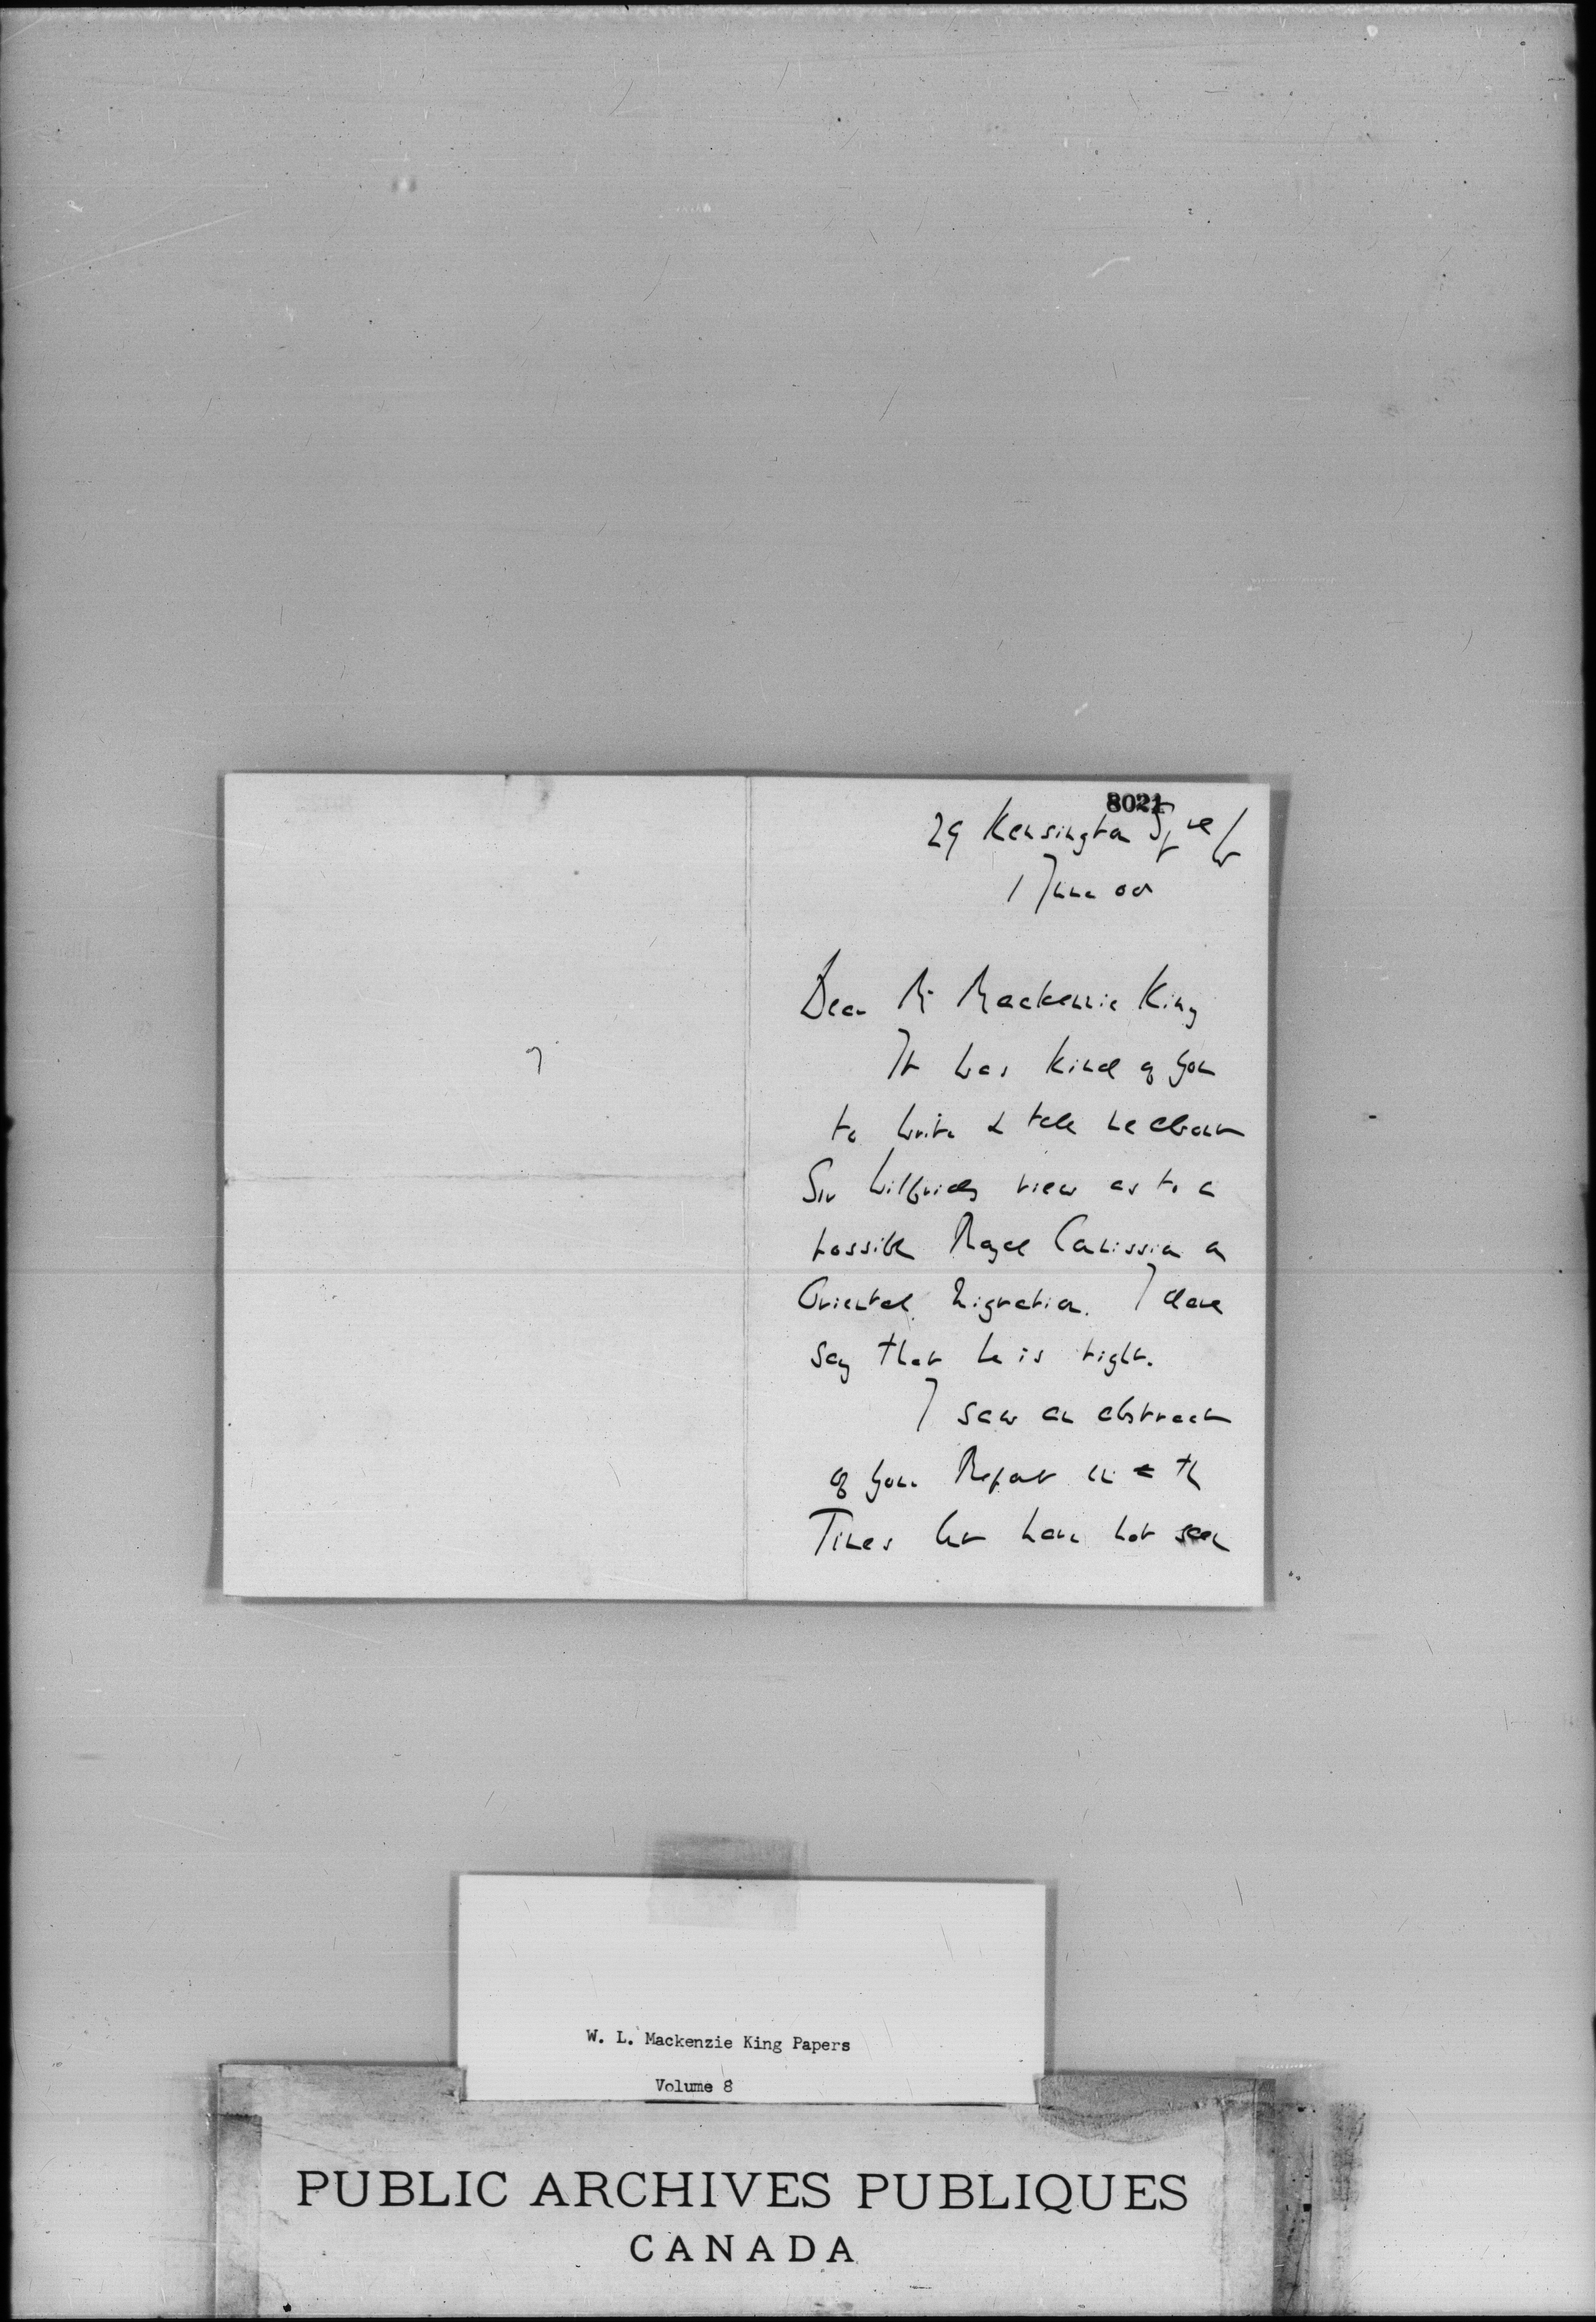 8021
29 Kensington Sqre W
1 June 08
Dear Mr Mackenzie King
It was kind of you
to write & tell me about
Sir Wilfrids view as to a
possible Royal Comission on
Oriental Migration. I dare
say that he is right.
I saw an abstract
of your Report in the
Times but have not seen
W. L. Mackenzie King Papers
Volume 8
PUBLIC ARCHIVES PUBLIQUES
CANADA